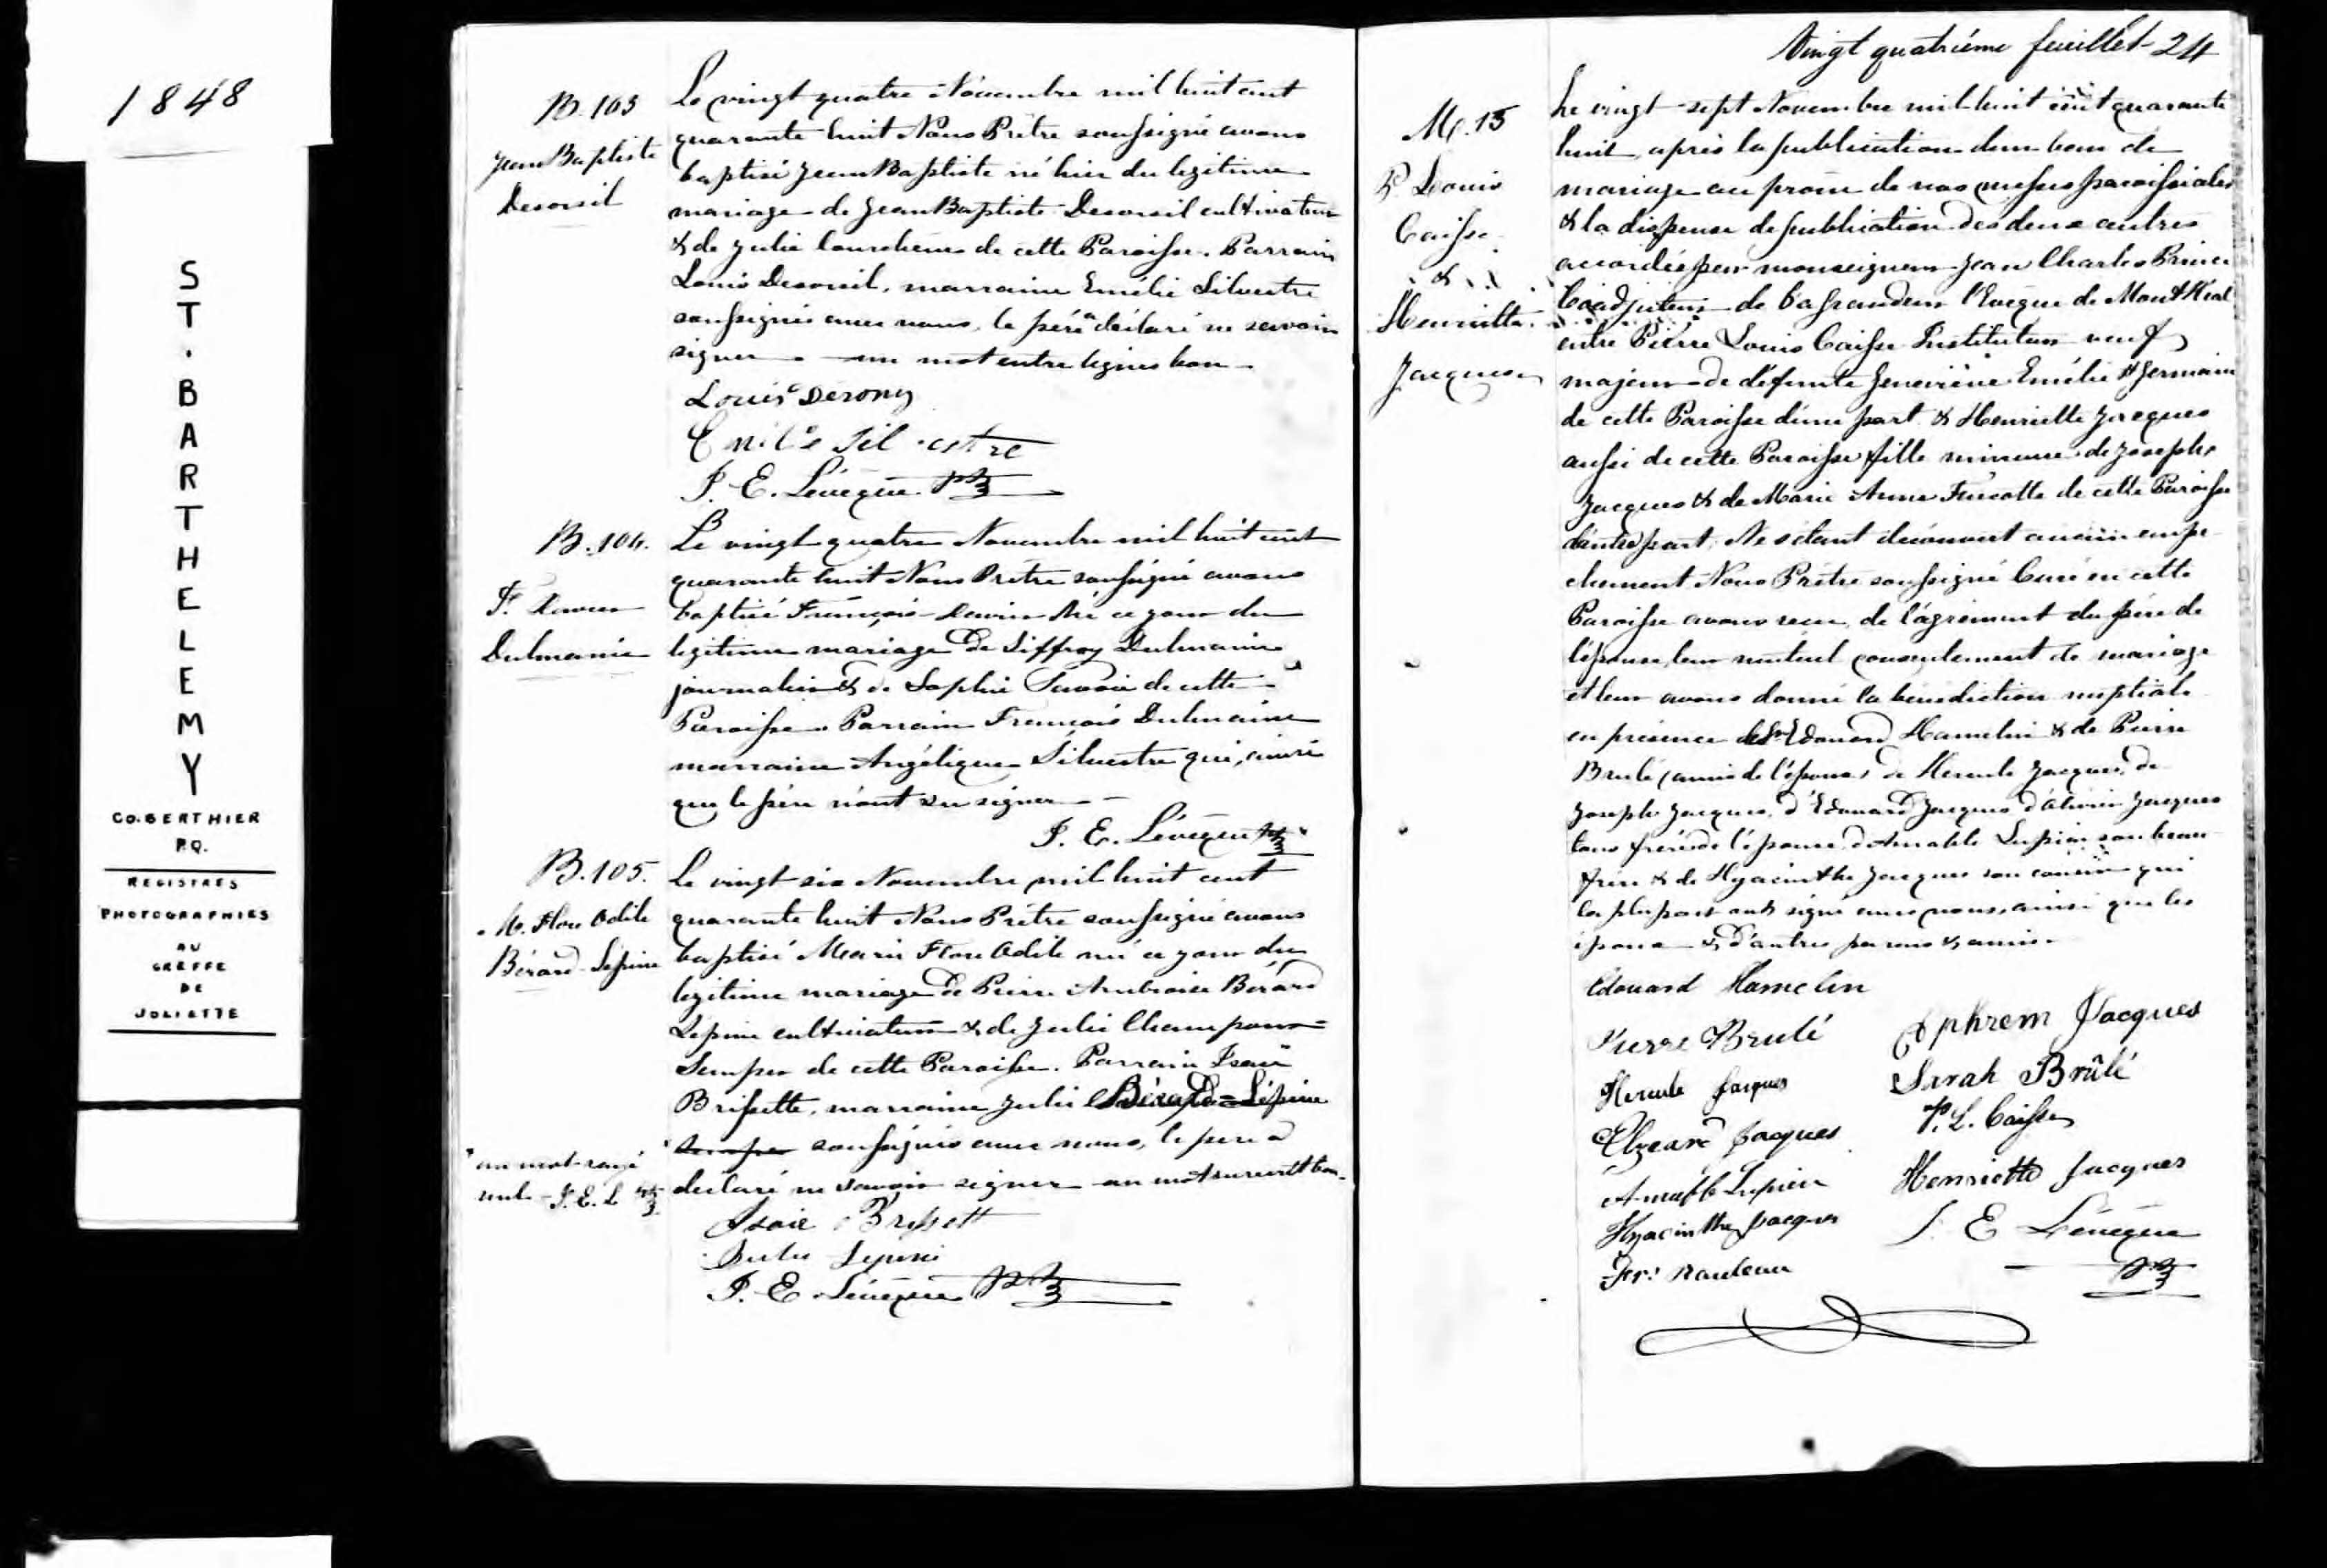 1848
ST. BARTHELEMY
CO. BERTHIER
P.Q.
REGISTRES
PHOTOGRAPHIES
AU
GREFFE
DE
JOLIETTE
B. 103
Jean Baptiste
Desorsil
Le vingt quatre Novembre mil huit cent
quarante huit Nous Prêtre soussigné avons
baptisé Jean Baptiste né hier du legitime
mariage de Jean Baptiste Desorsil cultivateur
& de Julie de cette Paroisse. Parrain
Louis Desorsil, marraine Emélie Silvestre
soussignés avec nous, le père a déclaré ne savoir
signer. un mot entre lignes bon.
Louis
J. E. Lévêque Ptre
B. 104.
F. Xavier
Dulmaine
Le vingt quatre Novembre mil huit cent
quarante huit Nous Prêtre soussigné avons
baptisé François Xavier né ce jour du
legitime mariage de Siffroy Dulmaine
journalier & de Sophie Savoie de cette
Paroisse. Parrain François Dulmaine
marraine Angélique Silvestre qui, ainsi
que le père n'ont su signer.
J. E. Lévêque Ptre
B. 105.
M. Flore Odile
Bérard-Lépine
Le vingt six Novembre mil huit cent
quarante huit Nous Prêtre soussigné avons
baptisé Marie Flore Odile né ce jour du
legitime mariage de Pierre Ambroise Bérard
Lépine cultivateur & de Julie
de cette Paroisse. Parrain Isaïe
Brissette, marraine Julie Bérard=Lépine
soussignés avec nous, le pere a
déclaré ne savoir signer un mot surécrit bon.
un mot rayé
nul - J. E. L. Ptre
Isaie Brissett
Julie Lepine
J. E. Lévêque Ptre
Vingt quatrième feuillet 24
M. 13
P. Louis
Caisse
&
Henriette
Jacques
Le vingt-sept Novembre mil huit cent quarante
huit, après la publication d'un ban de
mariage au prône de nos messes paroissiales
& la dispense de publication des deux autres
accordée par monseigneur Jean Charles Prince
Coadjuteur de Sa Grandeur l'Evêque de Mont Réal
entre Pierre Louis Caisse Instituteur veuf
majeur de défunte Geneviève Emélie St Germain
de cette Paroisse d'une part & Henriette Jacques
aussi de cette Paroisse fille mineure de Joseph
Jacques & de Marie Anne Turcotte de cette Paroisse
d'autre part, Ne s'étant découvert aucun empê
chement Nous Prêtre soussigné Curé en cette
Paroisse avons reçu, de l'agrément du père de
l'épouse leur mutuel consentement de mariage
et leur avons donné la bénédiction nuptiale
en présence de Edouard Hamelin & de Pierre
Brulé (amis de l'époux) de Hercule Jacques, de
Joseph Jacques, d'Edouard Jacques Jacques
tous frères de l'épouse, d'Amable Lupien son beau
frère & de Hyacinthe Jacques son cousin qui
la plupart ont signé avec nous, ainsi que les
époux & d'autres parens & amis.
Edouard Hamelin
Pierre Brulé
Ephrem Jacques
Hercule Jacques
Sarah Brûlé
Elzeard Jacques
P. L. Caisse
Amable Lupien
Henriette Jacques
Hyacinthe Jacques
J. E. Lévêque
Ptre